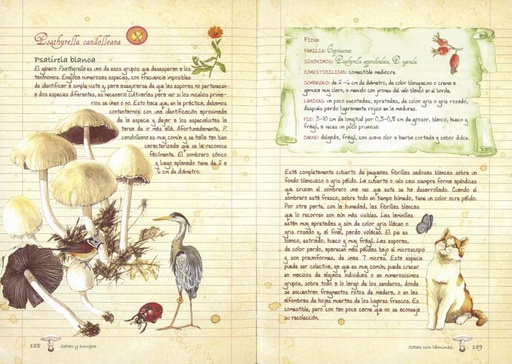 Psathyrella candolleana
Psatirela blanca
El género Psathyrella es uno de esos grupos que desesperan a los
taxónomos. Engloba numerosas especies, con frecuencia imposibles
de identificar a simple vista y, para asegurarse de que las esporas no pertenecen
a dos especies diferentes, es necesario cultivarlas para ver si los micelios prima-
rios se unen o no. Esto hace que, en la práctica, debamos
contentarnos con una identificación aproximada
de la especie y dejar a los especialistas la
tarea de ir más allá. Afortunadamente, P.
candolleana es muy común y se halla tan bien
caracterizada que se la reconoce
fácilmente. El sombrero cónico
y luego aplanado tiene de 2 a
6 cm de diámetro.
188 Setas y hongos
Ficha:
FAMILIA: Coprinaceae.
SINÓNIMOS: Psathyrella appendiculata, P.
COMESTIBILIDAD: comestible mediocre.
SOMBRERO: de 2-6 cm de diámetro, de color blanquecino o crema a
veces muy claro, a menudo con jirones del velo blanco en el borde.
LÁMINAS: un poco escotadas, apretadas, de color gris a gris rosado,
después pardo ligeramente rojizo en la madurez.
PIE: 3-10 cm de largo por 0,3-0,8 cm de grosor, blanco, hueco y
frágil, a veces un poco pruinoso.
CARNE: delgada, frágil, con suave olor a hierba cortada y sabor dulce.
Está completamente cubierto de pequeñas fibrillas sedosas blancas sobre un
fondo blanquecino a gris pálido. La cubierta o velo casi siempre forma apéndices
que cruzan el sombrero una vez que este se ha desarrollado. Cuando el
sombrero está fresco, sobre todo en tiempo húmedo, tiene un color ocre pálido.
Por otra parte, con la humedad, las fibrillas blancas
que lo recorren son aún más visibles. Las laminillas
están muy apretadas y son de color gris liláceo o
gris rosado y, al final, pardo violáceo. El pie es
blanco, estriado, hueco y muy frágil. Las esporas,
de color pardo, aparecen más pálidas bajo el microscopio
y son piriformes, de unas 7 micras. Esta especie
puede ser colectiva, ya que es muy común, puede crecer
en macizos de algunos individuos o en numerosísimos
grupos, sobre todo a lo largo de los senderos, donde
se encuentran fragmentos rotos de madera, o en las
alfombras de hojas muertas de los lugares frescos. Es
comestible, pero con tan poca carne que no se aconseja
su recolección.
Setas con láminas 189